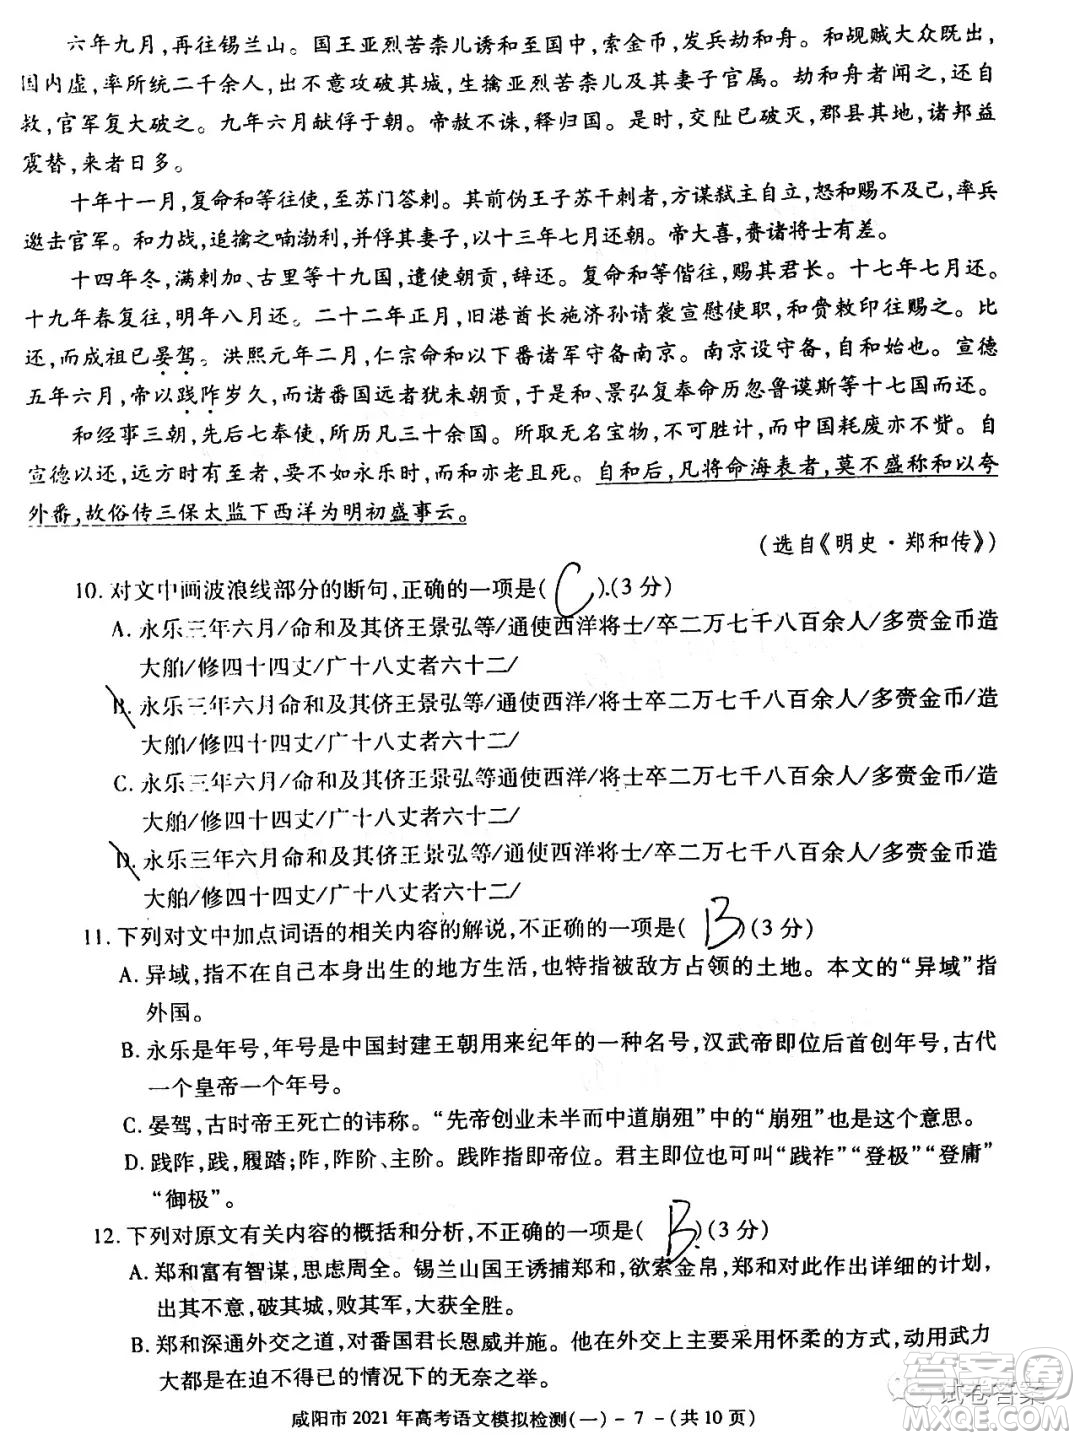 六年九月，再往锡兰山。国王亚烈苦柰儿诱和至国中，索金币，发兵劫和舟。和觇贼大众既出，
国内虚，率所统二千余人，出不意攻破其城，生擒亚烈苦柰儿及其妻子官属。劫和舟者闻之，还自
救，官军复大破之。九年六月献俘于朝。帝赦不诛，释归国。是时，交阯已破灭，郡县其地，诸邦益
震詟，来者日多。
十年十一月，复命和等往使，至苏门答剌。其前伪王子苏干剌者，方谋弑主自立，怒和赐不及己，率兵
邀击官军。和力战，追擒之喃渤利，并俘其妻子，以十三年七月还朝。帝大喜，赉诸将士有差。
十四年冬，满剌加、古里等十九国，遣使朝贡，辞还。复命和等偕往，赐其君长。十七年七月还。
十九年春复往，明年八月还。二十二年正月，旧港酋长施济孙请袭宣慰使职，和赍敕印往赐之。比
还，而成祖已晏驾。洪熙元年二月，仁宗命和以下番诸军守备南京。南京设守备，自和始也。宣德
五年六月，帝以践阼岁久，而诸番国远者犹未朝贡，于是和、景弘复奉命历忽鲁谟斯等十七国而还。
和经事三朝，先后七奉使，所历凡三十余国。所取无名宝物，不可胜计，而中国耗废亦不赀。自
宣德以还，远方时有至者，要不如永乐时，而和亦老且死。自和后，凡将命海表者，莫不盛称和以夸
外番，故俗传三保太监下西洋为明初盛事云。
（选自《明史·郑和传》）
10. 对文中画波浪线部分的断句，正确的一项是( C ).(3 分)
A. 永乐三年六月/命和及其侪王景弘等/通使西洋将士/卒二万七千八百余人/多赍金币造
大舶/修四十四丈/广十八丈者六十二/
B. 永乐三年六月命和及其侪王景弘等/通使西洋/将士卒二万七千八百余人/多赍金币/造
大舶/修四十四丈/广十八丈者六十二/
C. 永乐三年六月/命和及其侪王景弘等通使西洋/将士卒二万七千八百余人/多赍金币/造
大舶/修四十四丈/广十八丈者六十二/
D. 永乐三年六月命和及其侪王景弘等/通使西洋将士/卒二万七千八百余人/多赍金币造
大舶/修四十四丈/广十八丈者六十二/
11. 下列对文中加点词语的相关内容的解说，不正确的一项是( B )(3 分)
A. 异域，指不在自己本身出生的地方生活，也特指被敌方占领的土地。本文的“异域”指
外国。
B. 永乐是年号，年号是中国封建王朝用来纪年的一种名号，汉武帝即位后首创年号，古代
一个皇帝一个年号。
C. 晏驾，古时帝王死亡的讳称。“先帝创业未半而中道崩殂”中的“崩殂”也是这个意思。
D. 践阼，践，履踏；阼，阼阶、主阶。践阼指即帝位。君主即位也可叫“践祚”“登极”“登庸”
“御极”。
12. 下列对原文有关内容的概括和分析，不正确的一项是( B )(3 分)
A. 郑和富有智谋，思虑周全。锡兰山国王诱捕郑和，欲索金帛，郑和对此作出详细的计划，
出其不意，破其城，败其军，大获全胜。
B. 郑和深通外交之道，对番国君长恩威并施。他在外交上主要采用怀柔的方式，动用武力
大都是在迫不得已的情况下的无奈之举。
咸阳市 2021 年高考语文模拟检测(一) - 7 -(共 10 页)
答案圈
试卷答案